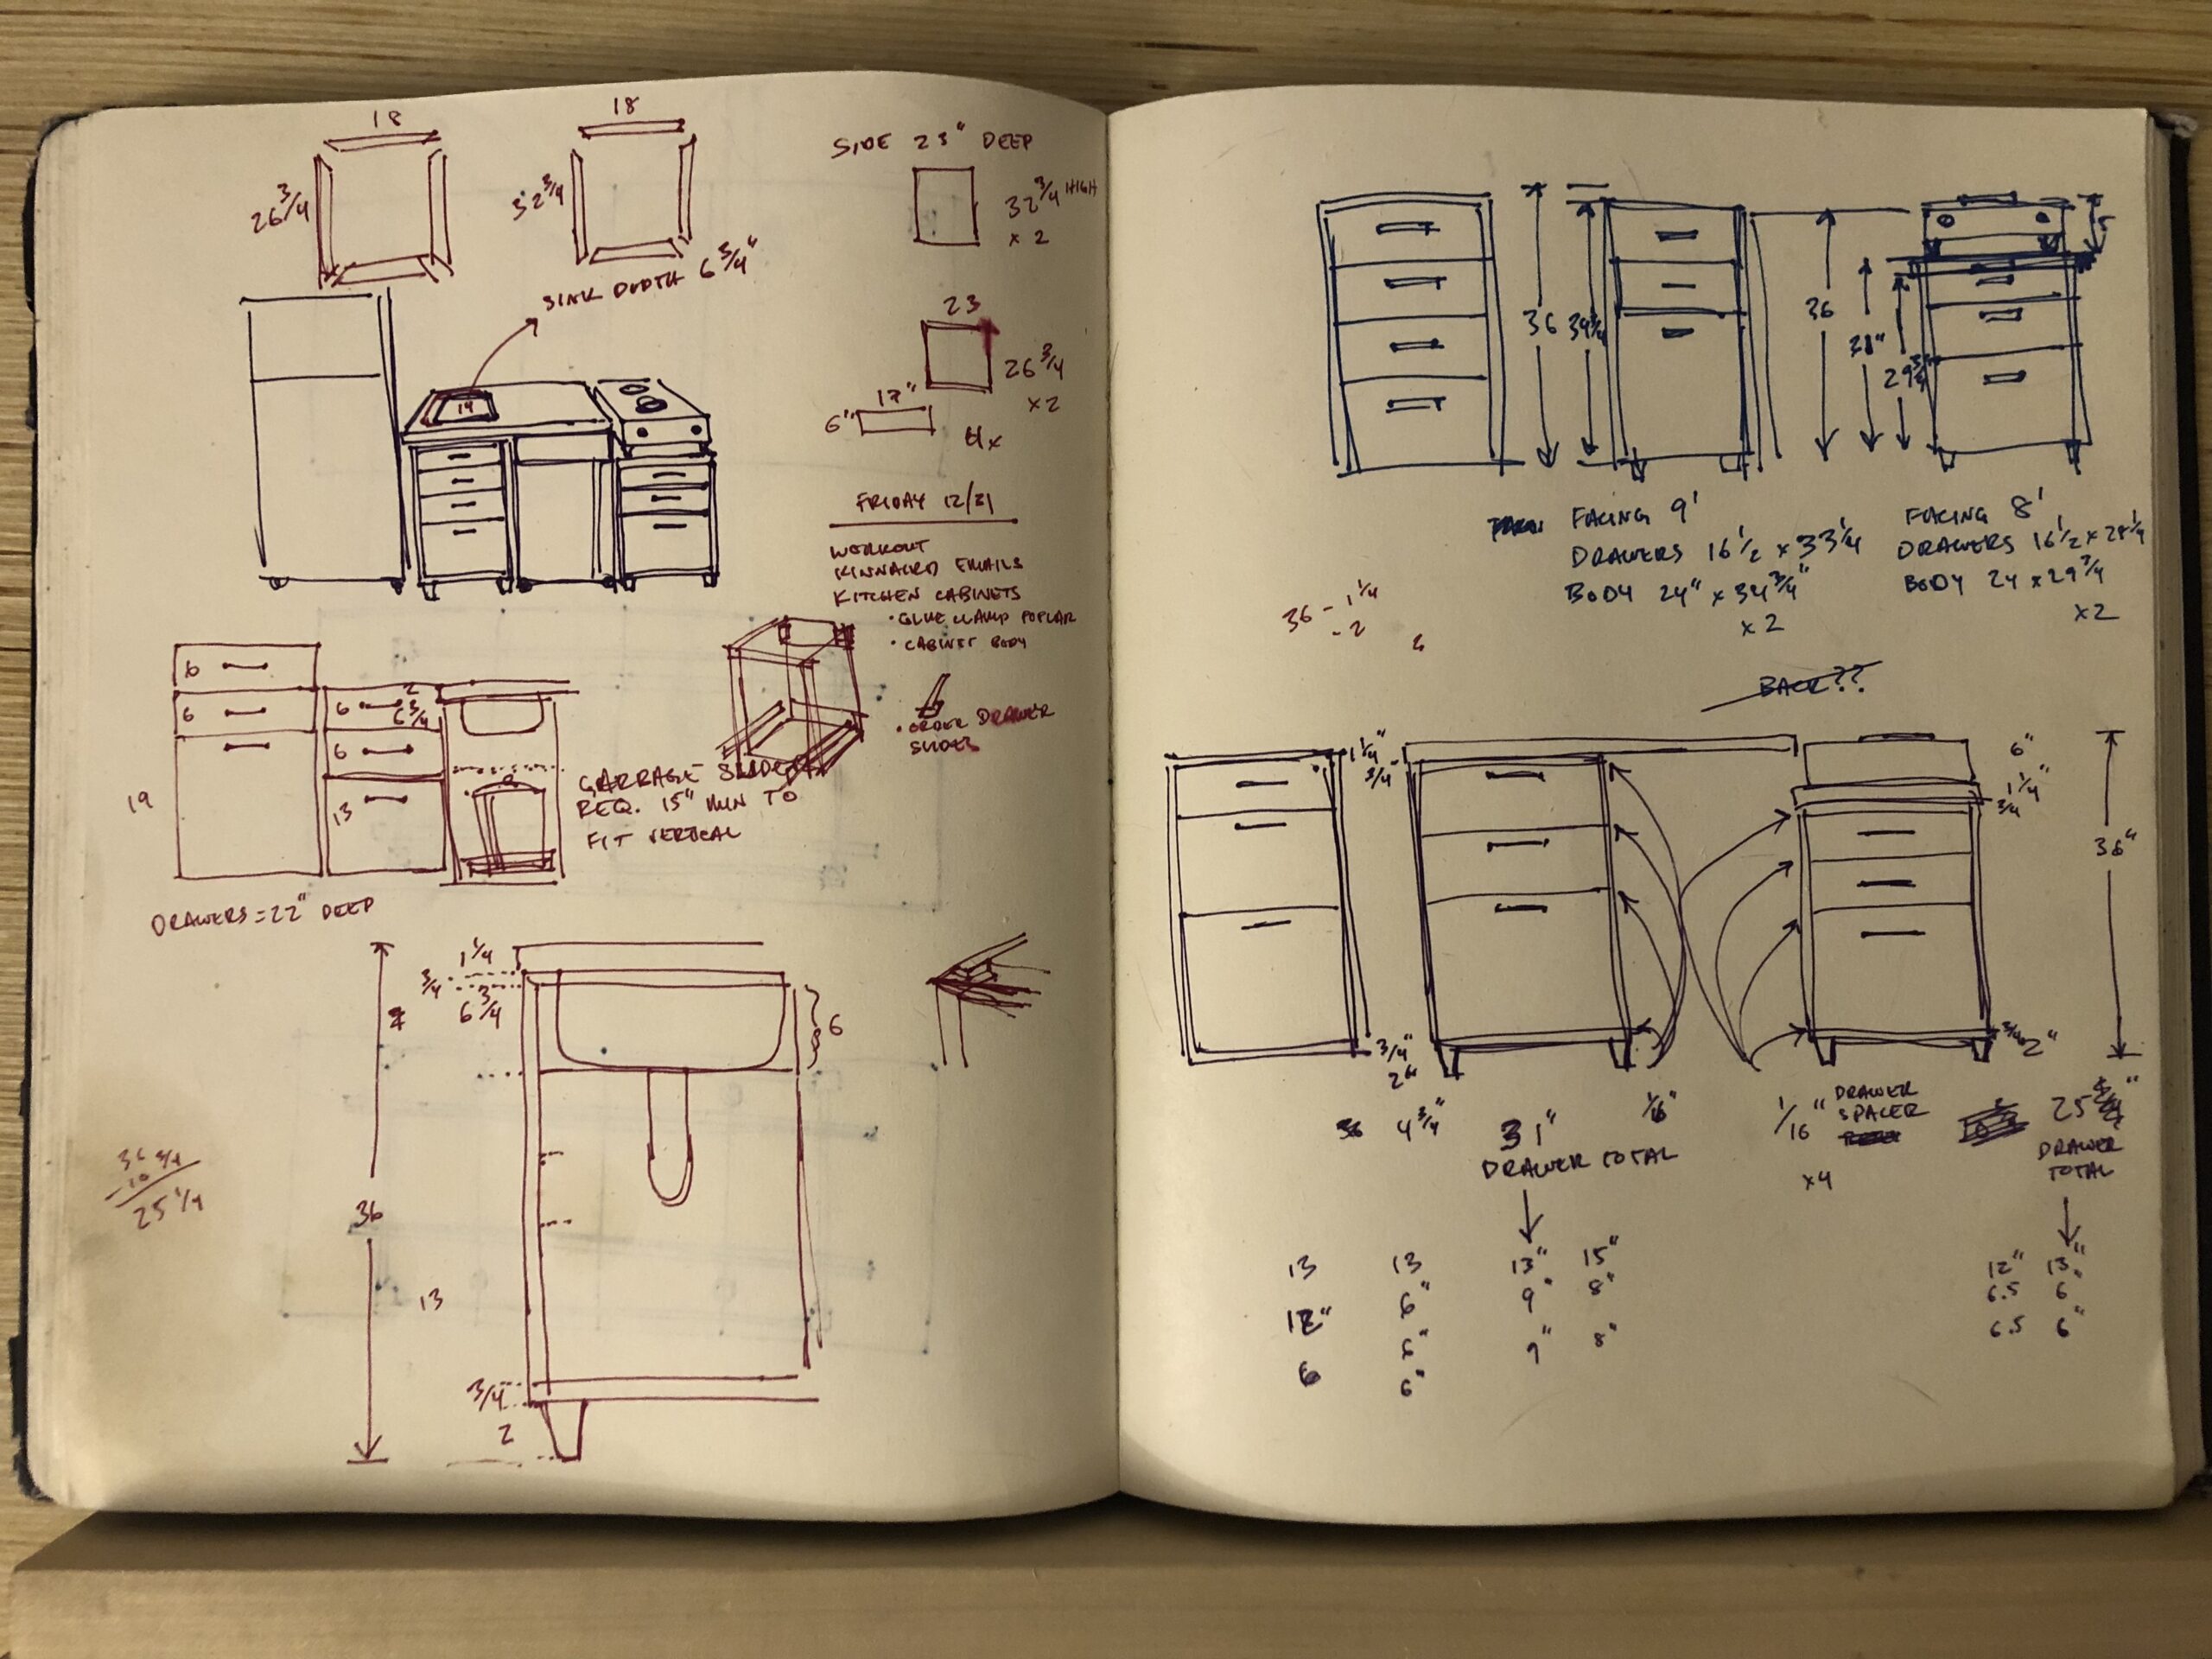 18
18
26 3/4
32 3/4
SINK DEPTH 6 3/4"
SIDE 23" DEEP
32 3/4 HIGH
x 2
23
26 3/4
x2
17"
6"
4x
19
FRIDAY 12/21
WORKOUT
KINNAIRD EMAILS
KITCHEN CABINETS
• GLUE CLAMP POPLAR
• CABINET BODY
• ORDER DRAWER
SLIDES
6
6
19
2
6
6 3/4
6
13
GARBAGE SLIDE
REQ. 15" MIN TO
FIT VERTICAL
DRAWERS = 22" DEEP
1 1/4
3/4
6 3/4
6
36 3/4
- 10
25 1/4
36
13
3/4
2
36
34 3/4
36
29 3/4
FACING 9'
DRAWERS 16 1/2 x 33 1/4
BODY 24" x 34 3/4"
x 2
FACING 8'
DRAWERS 16 1/2 x 28 1/4
BODY 24 x 29 3/4
x2
36 - 1 1/4
- 2
BACK??
1 1/4"
3/4"
6"
1 1/4"
3/4
36"
3/4"
2"
3/4
2"
36 4 3/4"
31"
DRAWER TOTAL
1/16"
1/16" DRAWER
SPACER
x4
25
DRAWER
TOTAL
13 13 13" 15"
6" 9" 8"
12"
6" 9" 8"
6 6"
12" 13"
6.5 6"
6.5 6"